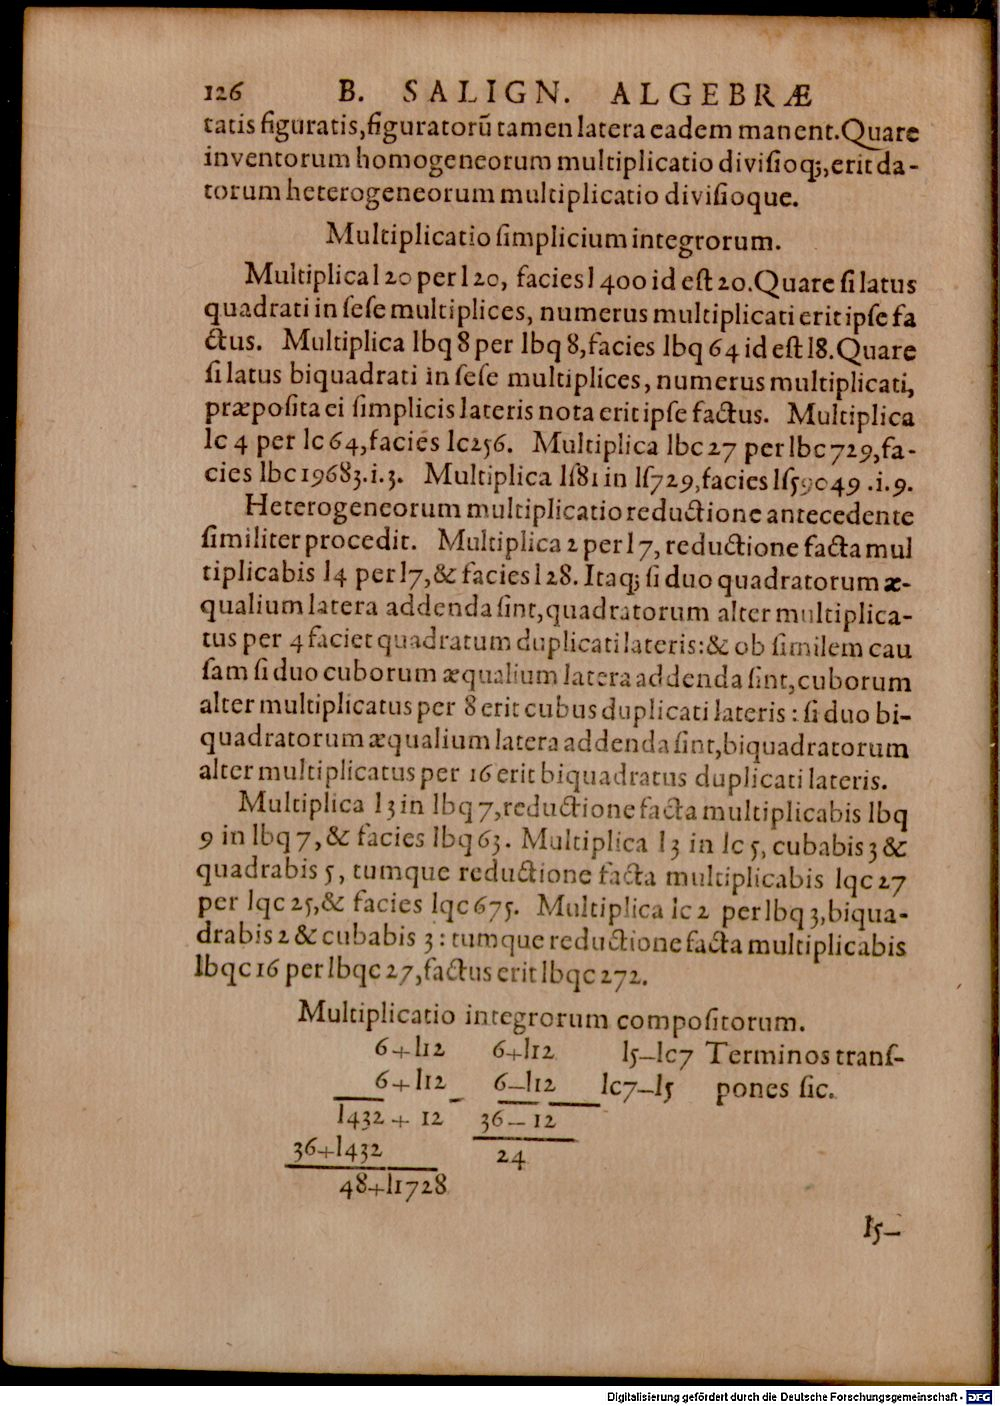 126 B. SALIGN. ALGEBRÆ
tatis figuratis,figuratorũ tamen latera eadem manent.Quare
inventorum homogeneorum multiplicatio divisioq;,erit da-
torum heterogeneorum multiplicatio divisioque.
Multiplicatio simplicium integrorum.
Multiplica l 20 per l 20, facies l 400 id est 20.Quare si latus
quadrati in sese multiplices, numerus multiplicati erit ipse fa
ctus. Multiplica lbq 8 per lbq 8,facies lbq 64 id est l8.Quare
si latus biquadrati in sese multiplices, numerus multiplicati,
præposita ei simplicis lateris nota erit ipse factus. Multiplica
lc 4 per lc 64,facies lc256. Multiplica lbc 27 per lbc 729,fa-
cies lbc 19683.i.3. Multiplica lſ81 in lſ729,facies lſ59049 .i.9.
Heterogeneorum multiplicatio reductione antecedente
similiter procedit. Multiplica 2 per l 7, reductione facta mul
tiplicabis l4 per l7,& facies l 28. Itaq; si duo quadratorum æ-
qualium latera addenda sint,quadratorum alter multiplica-
tus per 4 faciet quadratum duplicati lateris:& ob similem cau
sam si duo cuborum æqualium latera addenda sint,cuborum
alter multiplicatus per 8 erit cubus duplicati lateris : si duo bi-
quadratorum æqualium latera addenda sint,biquadratorum
alter multiplicatus per 16 erit biquadratus duplicati lateris.
Multiplica l 3 in lbq 7,reductione facta multiplicabis lbq
9 in lbq 7, & facies lbq 63. Multiplica l 3 in lc 5, cubabis 3 &
quadrabis 5, tumque reductione facta multiplicabis lqc 27
per lqc 25,& facies lqc 675. Multiplica lc 2 per lbq 3,biqua-
drabis 2 & cubabis 3 : tumque reductione facta multiplicabis
lbqc 16 per lbqc 27,factus erit lbqc 272.
Multiplicatio integrorum compositorum.
6+l12 6+l12 l5–lc7 Terminos trans-
6+l12 6–l12 lc7–l5 pones sic.
l432 + 12 36 – 12
36+l432 24
48+l1728
l5–
Digitalisierung gefördert durch die Deutsche Forschungsgemeinschaft - DFG